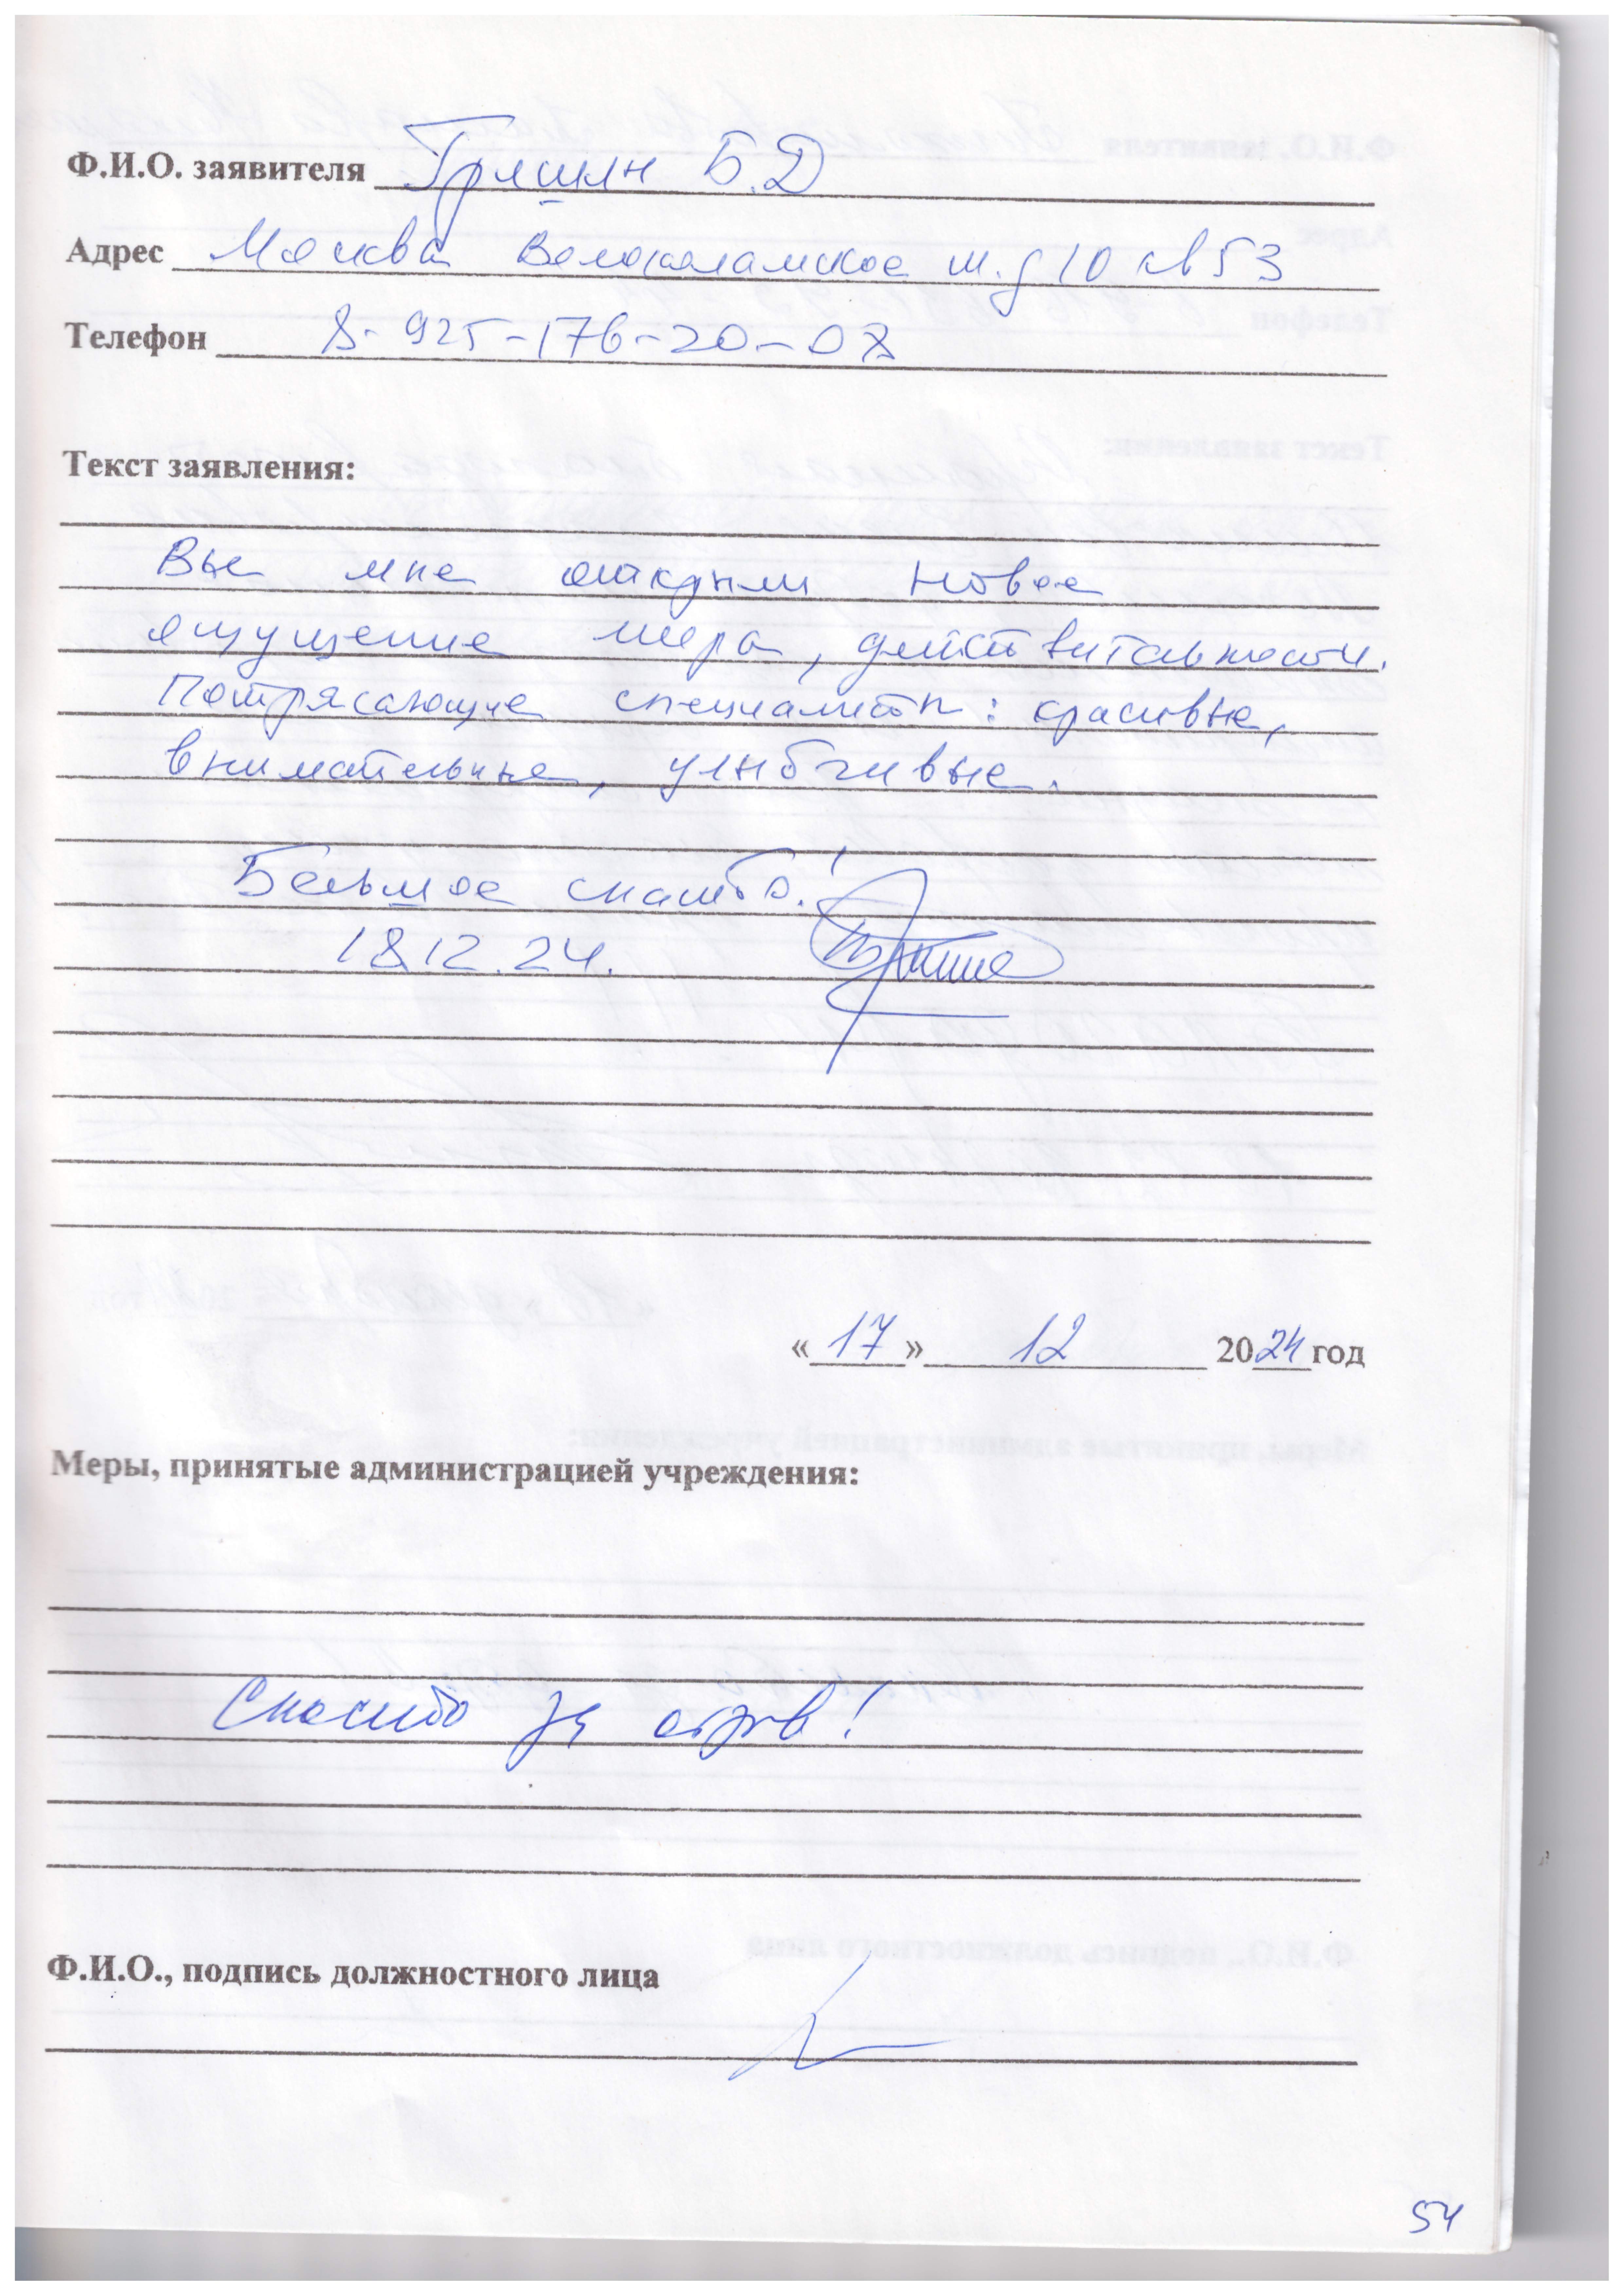 Ф.И.О. заявителя Гришин Б.Д
Адрес Москва Волоколамское ш. д 10 кв 53
Телефон 8-925-176-20-08
Текст заявления:
Вы мне открыли новое
ощущение мира, действительности.
Потрясающие специалисты: красивые,
внимательные, улыбчивые.
Большое спасибо!
18.12.24.
«17» 12 2024 год
Меры, принятые администрацией учреждения:
Спасибо за отзыв!
Ф.И.О., подпись должностного лица
54